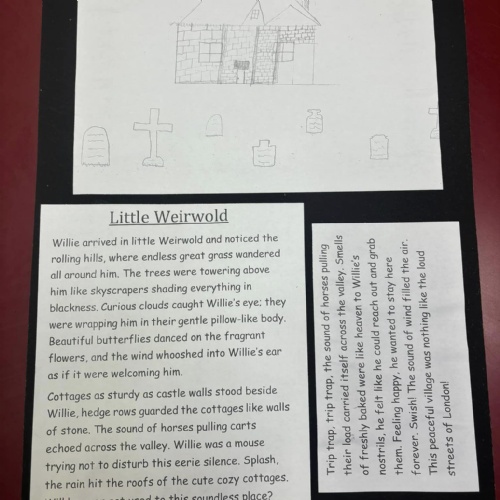 Little Weirwold
Willie arrived in little Weirwold and noticed the
rolling hills, where endless great grass wandered
all around him. The trees were towering above
him like skyscrapers shading everything in
blackness. Curious clouds caught Willie's eye; they
were wrapping him in their gentle pillow-like body.
Beautiful butterflies danced on the fragrant
flowers, and the wind whooshed into Willie's ear
as if it were welcoming him.
Cottages as sturdy as castle walls stood beside
Willie, hedge rows guarded the cottages like walls
of stone. The sound of horses pulling carts
echoed across the valley. Willie was a mouse
trying not to disturb this eerie silence. Splash,
the rain hit the roofs of the cute cozy cottages.
used to this soundless place?
Trip trap, trip trap, the sound of horses pulling
their load carried itself across the valley. Smells
of freshly baked were like heaven to Willie's
nostrils, he felt like he could reach out and grab
them. Feeling happy, he wanted to stay here
forever. Swish! The sound of wind filled the air.
This peaceful village was nothing like the loud
streets of London!